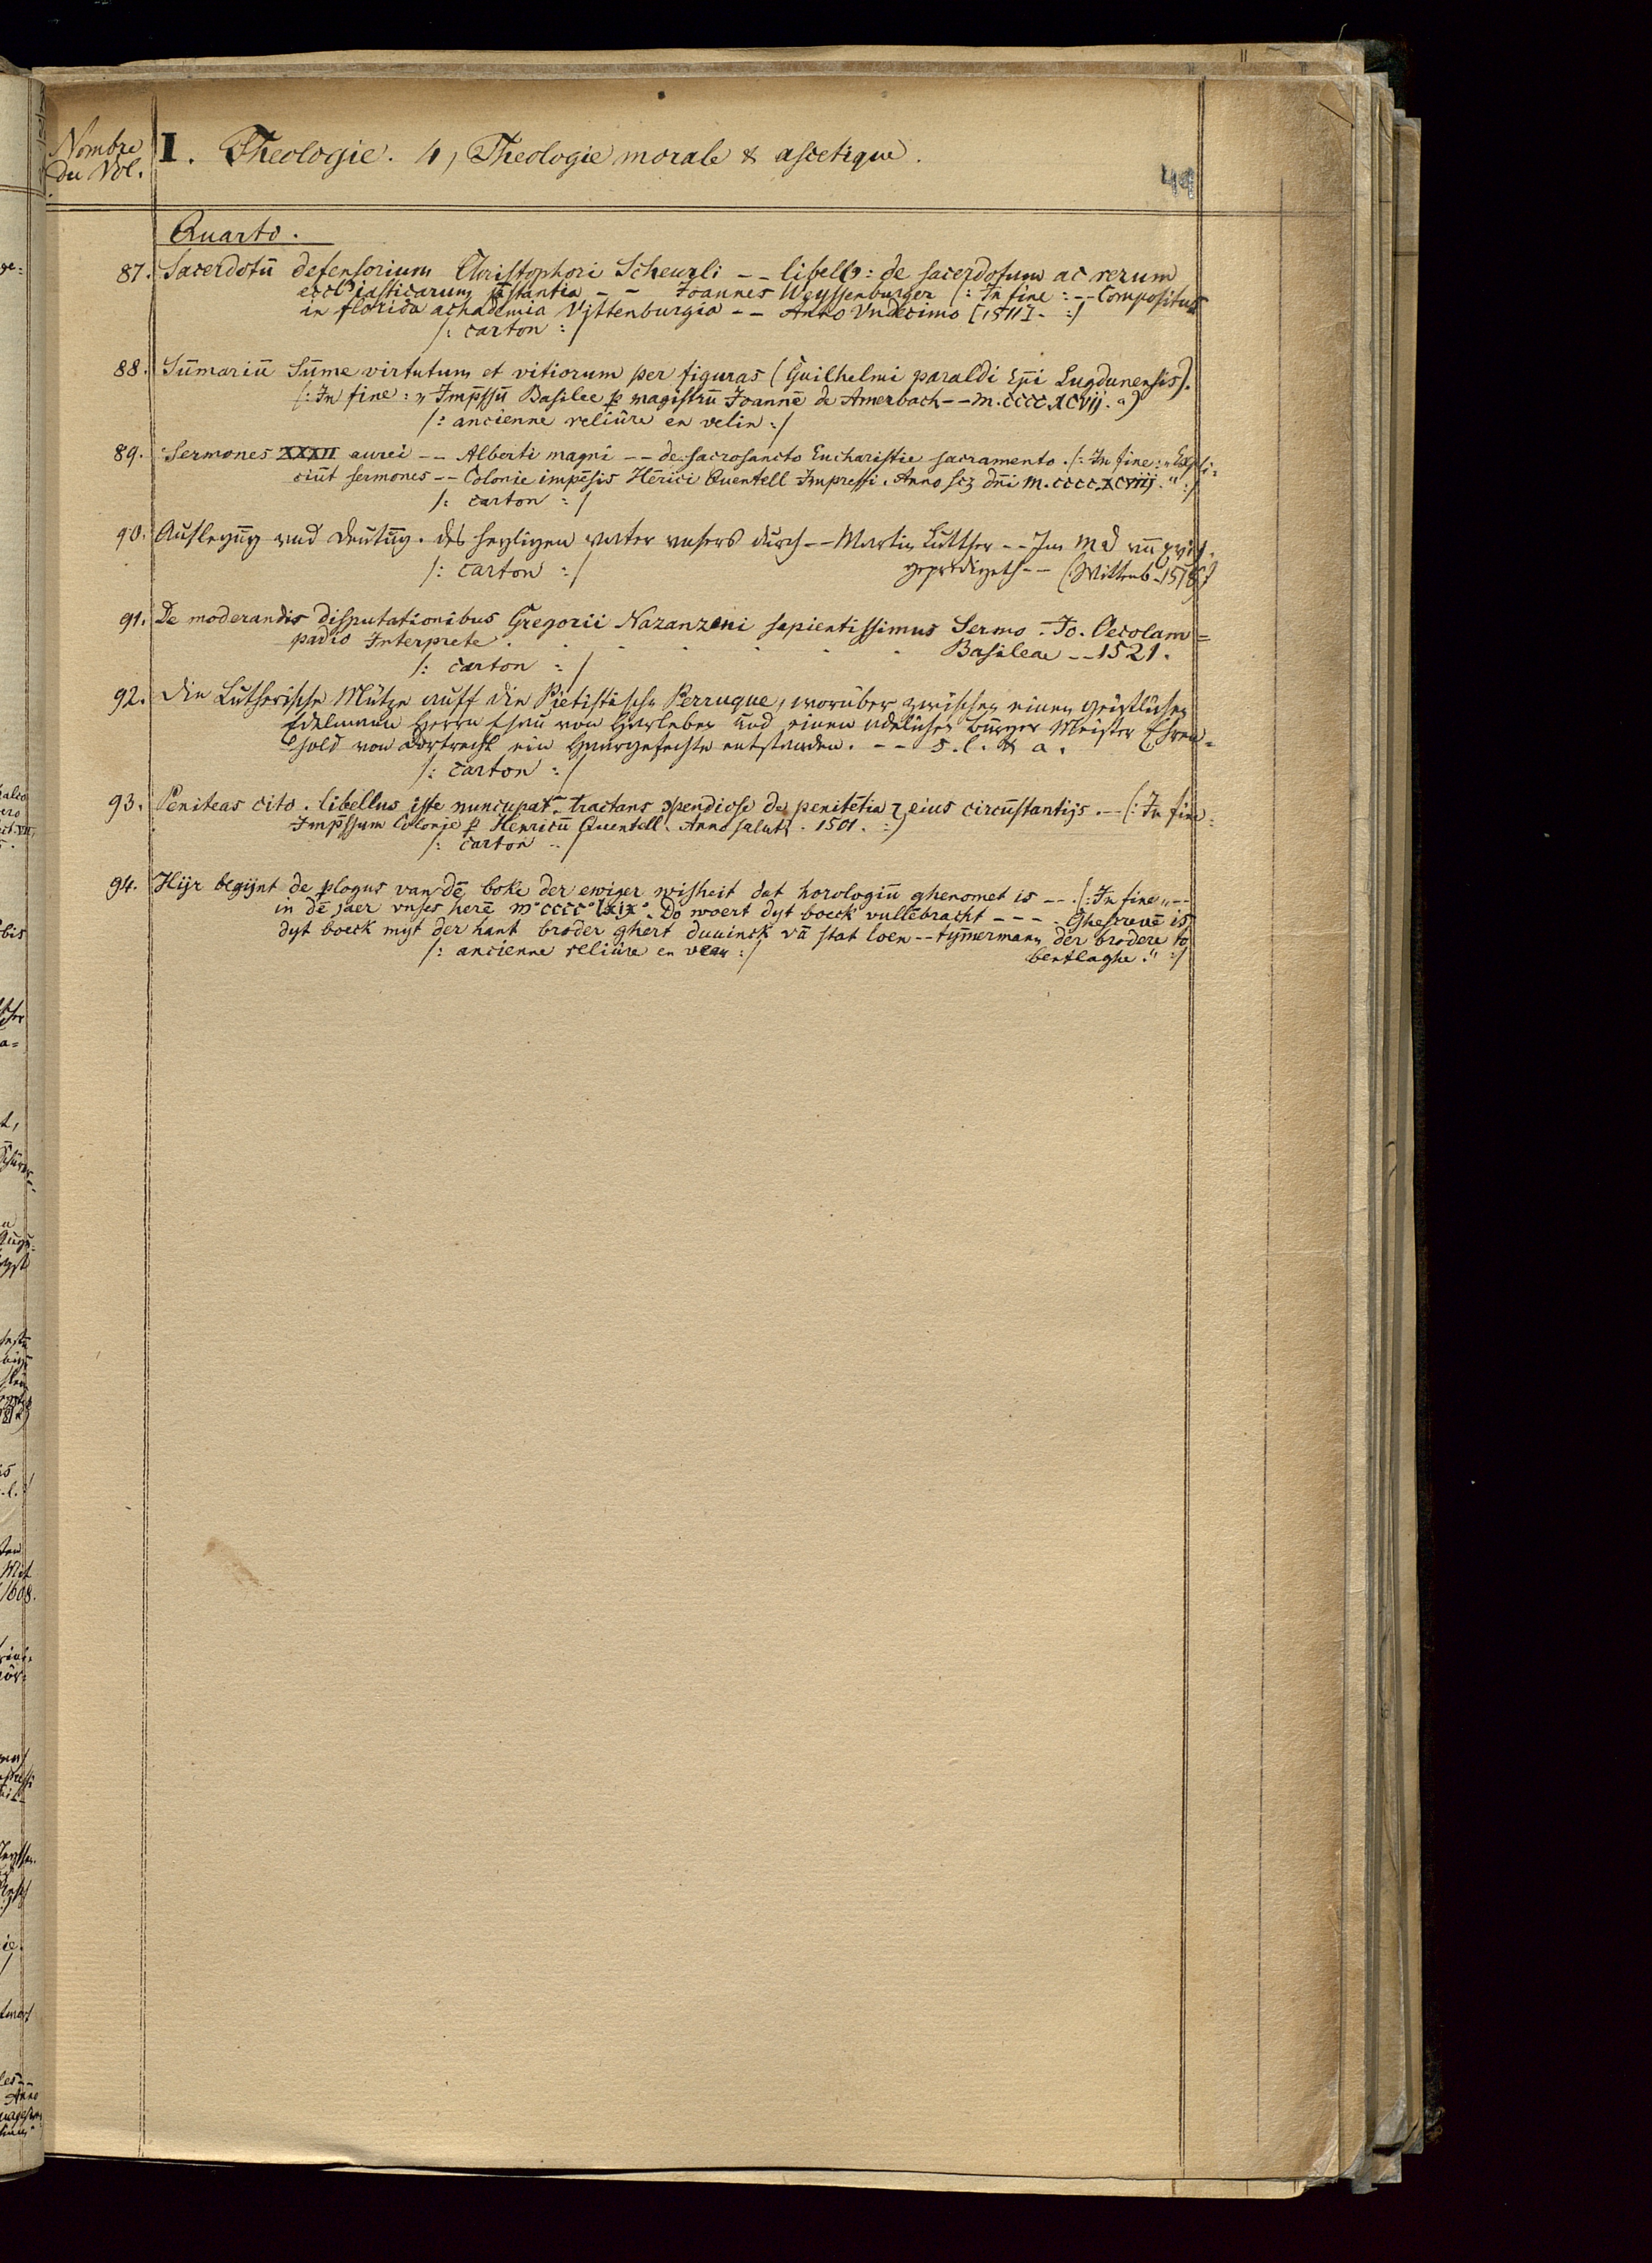 Nombre
du Vol.
I. Theologie. 4, Theologie morale & ascetique.
49
Quarto.
87. Sacerdotū defensorium Christophori Scheurli -- libellꝰ: de sacerdotum ac rerum
ecclīasticarum p̄stantia -- Joannes Weyssenburger (: In fine: -- Compositus
in florida achademia Vittenburgia -- Anno Undecimo [1511]. :)
/: carton :/
88. Sūmariū Sūme virtutum et vitiorum per figuras (Guilhelmi paraldi Epī Lugdunensis).
(: In fine: „ Imp̄ssū Basilee ꝑ magistrū Joannē de Amerbach -- M.CCCC.XCVII. “)
/: ancienne reliûre en velin :/
89. Sermones XXXII aurei -- Alberti magni -- de sacrosancto Eucharistie sacramento. (: In fine: „ Expli=
ciūt sermones -- Colonie impēsis Hērici Quentell Impressi. Anno scꝫ dn̄i M.CCCC.XCVIIJ. “ :)
/: carton :/
90. Auslegūg und deutūg. des heyligen vater unsers durch -- Martin Lutther -- Im Md vn̄ xviij.
gepredigeth -- (Wittenb. 1518)
/: carton :/
91. De moderandis disputationibus Gregorii Nazanzeni sapientissimus Sermo. Jo. Oecolam=
padio Interprete . . . . . . Basileae -- 1521.
/: carton :/
92. Die Lutherische Mütze auff die Pietistische Perruque, worüber zwischen einen geistlichen
Edelmann Herrn Ehrn von Harleben und einem adelichen Bürger Meister Ehren=
hold von Dortrecht ein Haargefechte entstanden. -- s. l. & a.
/: carton :/
93. Peniteas cito. libellus iste nuncupat᷑ tractans ꝯpendiose de penitētia ⁊ eius circūstantijs. -- (: In fine:
Imp̄ssum Colonie ꝑ Henricū Quentell. Anno salutꝭ. 1501. :)
/: carton :/
94. Hijr begijnt de plogus van dē boke der ewiger wisheit dat horologiū ghenomet is --. (: In fine „ --
in dē jaer vnses herē m°cccc°lxix°. Do woert dyt boeck vullēbracht --- Ghescreuē is
dyt boeck myt der hant broder ghert duuinck vā stat loen -- tym̄ermann der brodere to
bentlaghe. “ :)
/: ancienne reliûre en veau :/